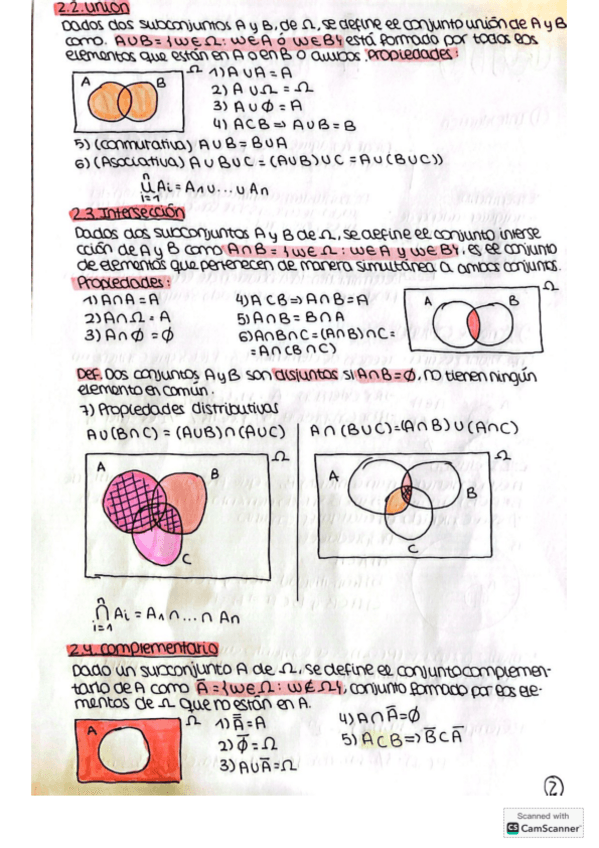 2.2. Unión
Dados dos subconjuntos A y B, de Ω, se define el conjunto unión de A y B
como. A∪B = {w∈Ω: w∈A ó w∈B} está formado por todos los
elementos que están en A o en B o ambos. Propiedades:
A B Ω
1) A∪A = A
2) A∪Ω = Ω
3) A∪Ø = A
4) A⊂B ⇒ A∪B = B
5) (Conmutativa) A∪B = B∪A
6) (Asociativa) A∪B∪C = (A∪B)∪C = A∪(B∪C))
n
∪Ai = A1∪...∪An
i=1
2.3. Intersección
Dados dos subconjuntos A y B de Ω, se define el conjunto interse
cción de A y B como A∩B = {w∈Ω: w∈A y w∈B}, es el conjunto
de elementos que pertenecen de manera simultánea a ambos conjuntos.
Propiedades:
1) A∩A = A
2) A∩Ω = A
3) A∩Ø = Ø
4) A⊂B ⇒ A∩B = A
5) A∩B = B∩A
6) A∩B∩C = (A∩B)∩C =
= A∩(B∩C)
A B Ω
Def. Dos conjuntos A y B son disjuntos si A∩B = Ø, no tienen ningún
elemento en común.
7) Propiedades distributivas
A∪(B∩C) = (A∪B)∩(A∪C)
A B C Ω
A∩(B∪C)=(A∩B)∪(A∩C)
A B C Ω
n
∩Ai = A1∩...∩An
i=1
2.4. Complementario
Dado un subconjunto A de Ω, se define el conjunto complemen-
tario de A como Ā = {w∈Ω: w∉Ω}, conjunto formado por los ele-
mentos de Ω que no están en A.
A Ω
1) A̿ = A
2) Ø̄ = Ω
3) A∪Ā = Ω
4) A∩Ā = Ø
5) A⊂B ⇒ B̄⊂Ā
2
Scanned with
CS CamScanner